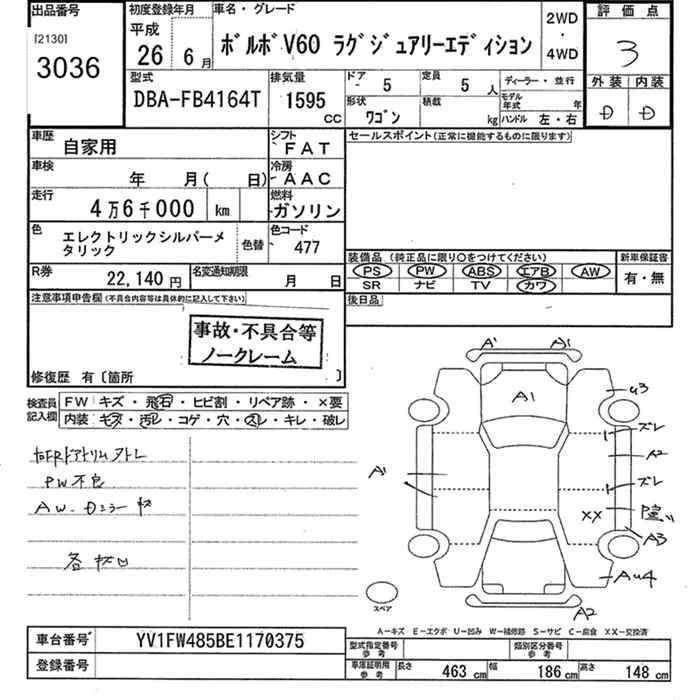 出品番号
[2130]
3036
初度登録年月
平成
26 6月
車名・グレード
ボルボV60 ラグジュアリーエディション
2WD
・
4WD
評価点
3
外装 内装
D D
型式
DBA-FB4164T
排気量
1595
CC
ドア
- 5
定員
5人
ディーラー・並行
形状
ワゴン
積載
kg
モデル年式 年
ハンドル 左・右
車歴
自家用
シフト
FAT
セールスポイント(正常に機能するものに限ります)
車検
年 月( 日)
冷房
AAC
走行
4万6千000 km
燃料
ガソリン
色
エレクトリックシルバーメタリック
色替
色コード
477
装備品(純正品に限り○をつけてください)
PS PW ABS エアB AW
SR ナビ TV カワ
新車保証書
有・無
R券
22,140円
名変通知期限
月 日
後日品
注意事項申告欄(不具合内容等は具体的に記入して下さい)
事故・不具合等
ノークレーム
修復歴 有〔箇所 〕
検査員
記入欄
FW キズ・飛石・ヒビ割・リペア跡・×要
内装 キズ・汚レ・コゲ・穴・スレ・キレ・破レ
右FRドアトリム外レ
PW不良
AW.Dミラーキズ
A1 A1
A1
u3
ズレ
A2
A1
ズレ
XX
A3
Au4
A2
スペア
A-キズ E-エクボ U-凹み W-補修跡 S-サビ C-腐食 XX-交換済
車台番号
YV1FW485BE1170375
登録番号
型式指定番号
参考
類別区分番号
参考
車庫証明用
参考
長さ 463 cm 幅 186 cm 高さ 148 cm